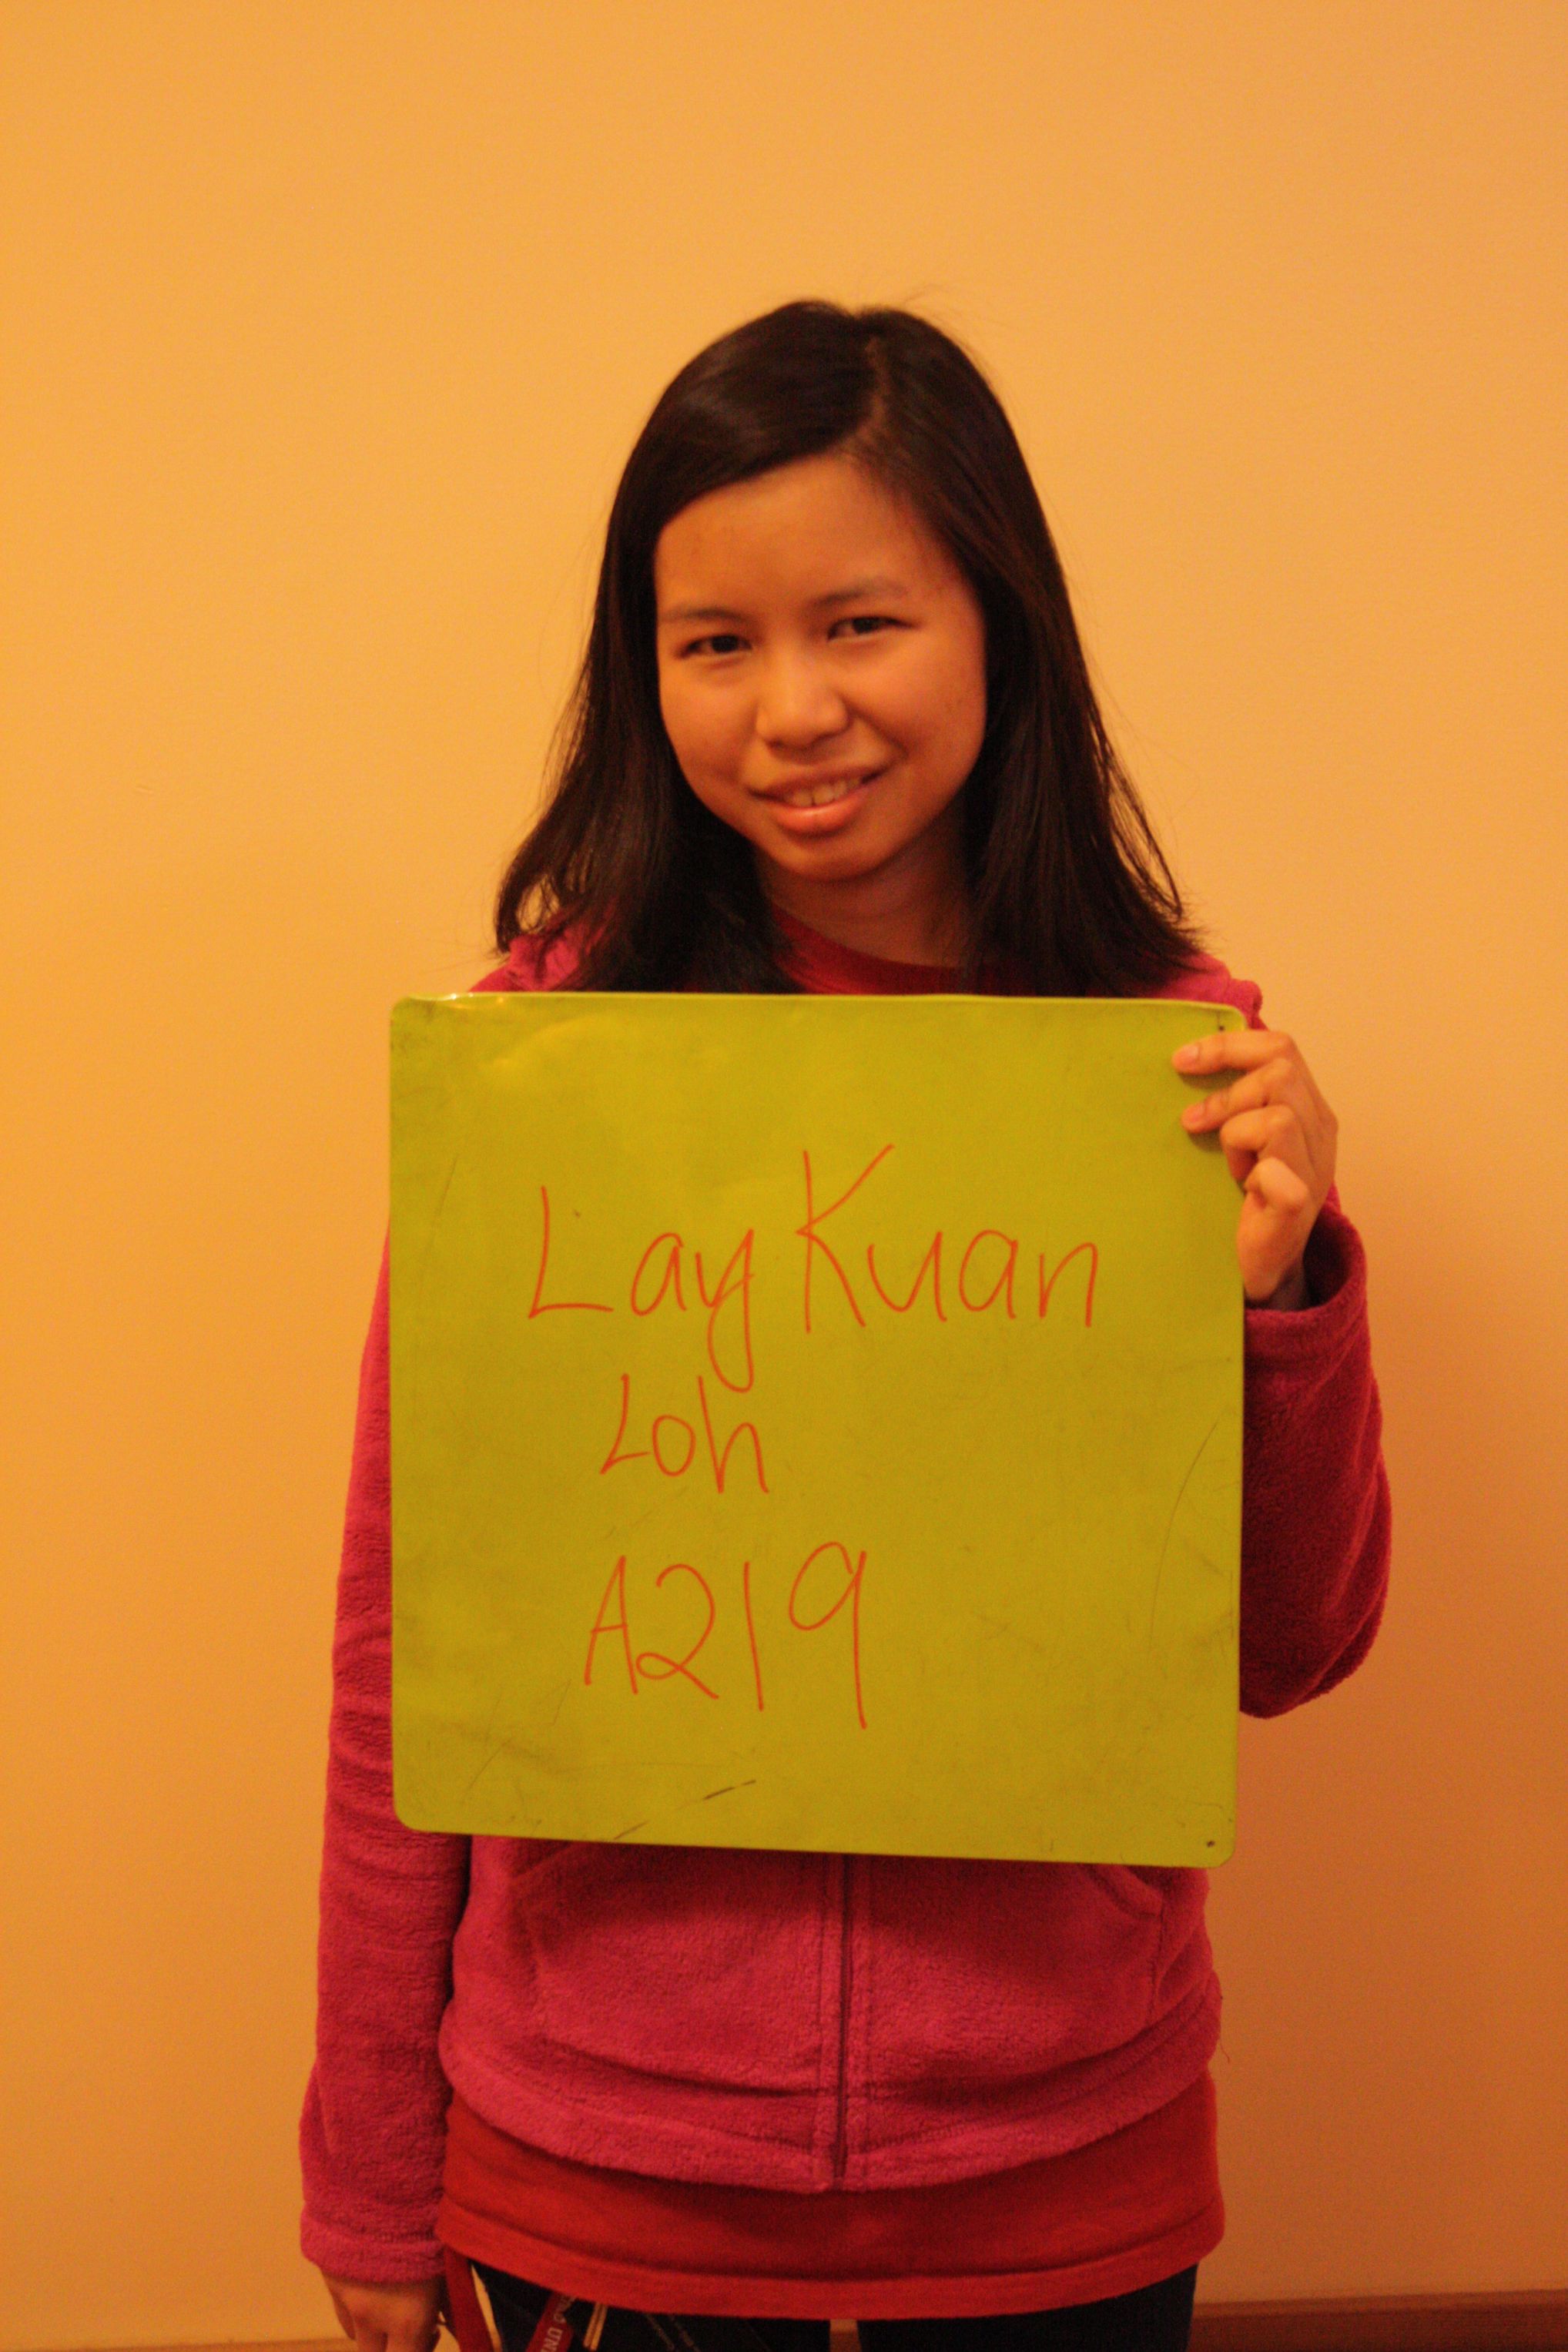 Lay Kuan
Loh
A219